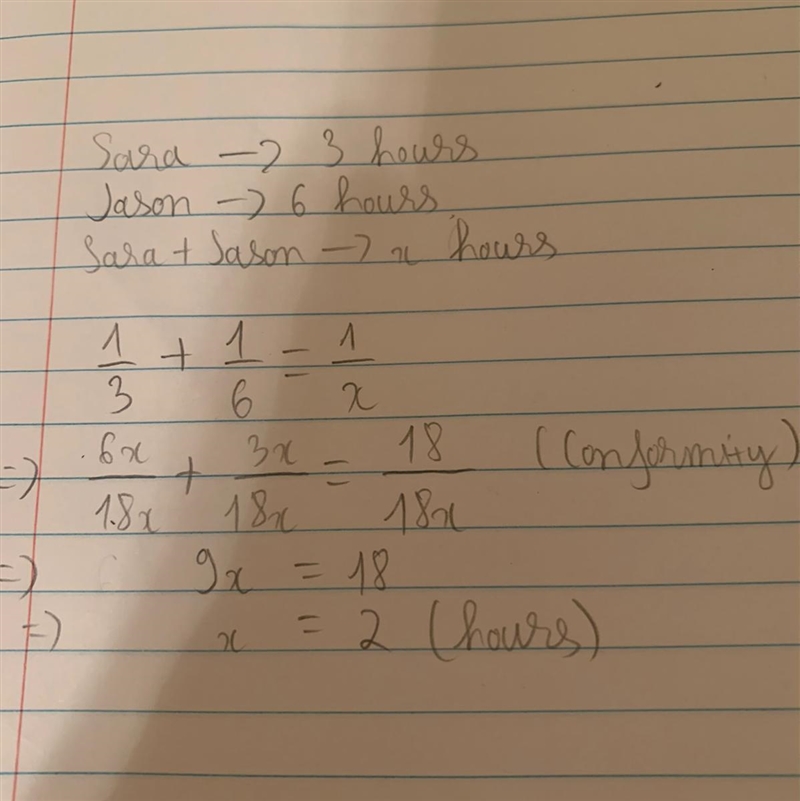 Sara → 3 hours
Jason → 6 hours
Sara + Jason → x hours
1/3 + 1/6 = 1/x
=> 6x/18x + 3x/18x = 18/18x (Conformity)
=> 9x = 18
=> x = 2 (hours)